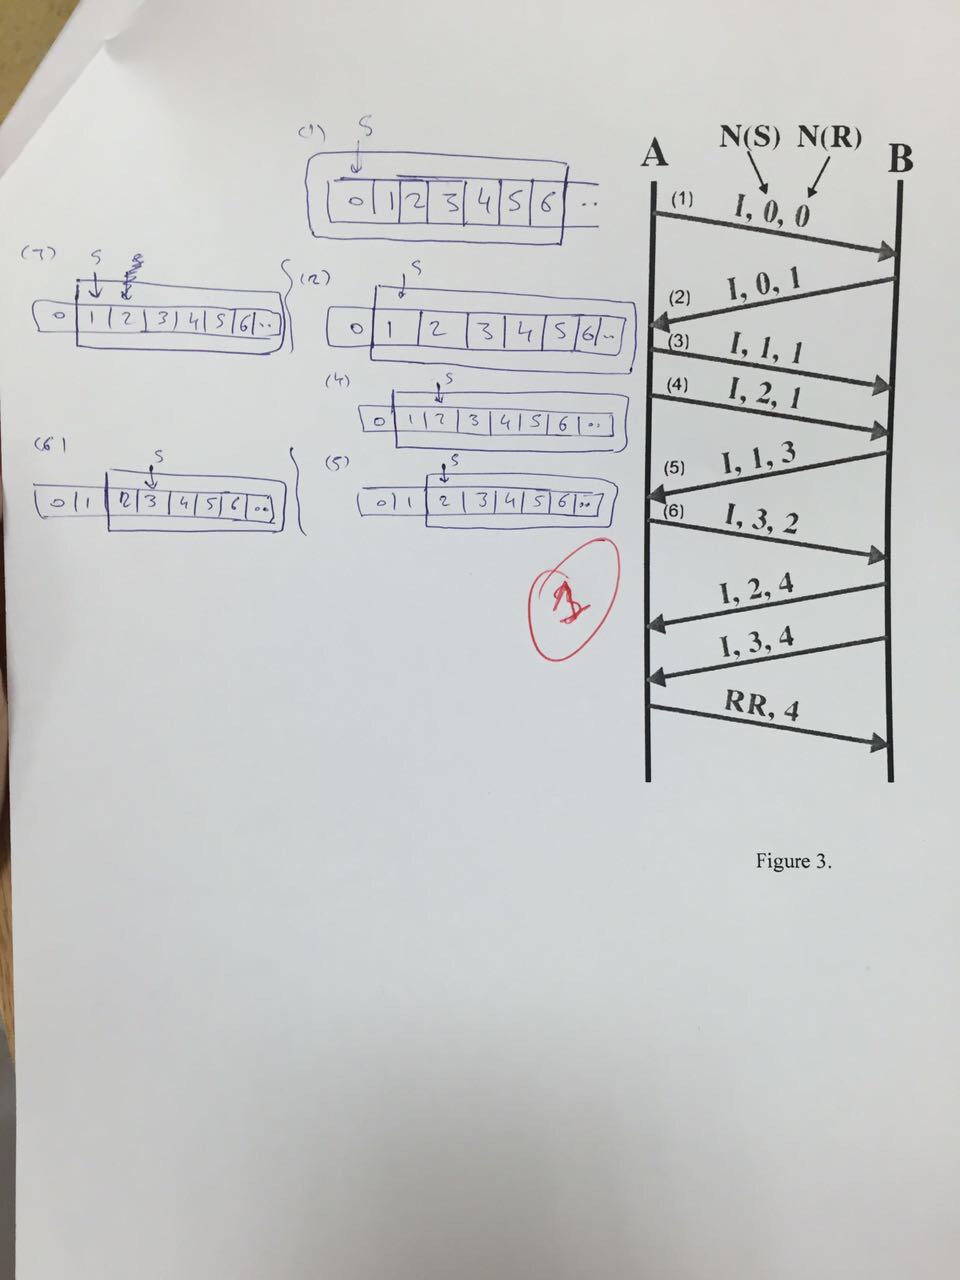 (1) S
0 1 2 3 4 5 6 ..
(3) S
0 1 2 3 4 5 6 ..
(2) S
0 1 2 3 4 5 6 ..
(4) S
0 1 2 3 4 5 6 ..
(6) S
0 1 2 3 4 5 6 ..
(5) S
0 1 2 3 4 5 6 ..
A N(S) N(R) B
(1) I, 0, 0
(2) I, 0, 1
(3) I, 1, 1
(4) I, 2, 1
(5) I, 1, 3
(6) I, 3, 2
I, 2, 4
I, 3, 4
RR, 4
Figure 3.